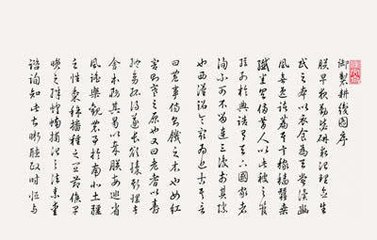 御製耕織圖序
朕早夜勤毖研求治理念生
民之本以衣食為天嘗讀豳
風無逸諸篇其言稼穡蠶桑
纖悉具備昔人以此被之管
弦列於典誥有天下國家者
洵不可不留連三復於其際
也西漢詔令最為近古其言
曰農事傷則饑之本也女紅
害則寒之原也又曰老者以壽
終幼孤得遂長欲臻斯理者
舍本務其曷以哉朕每巡省
風謠樂觀農事於南北土疆
之性黍稷播種之宜節候早
晚之殊蝗蝻捕治之法素愛
諮詢知此甚晰聽政時恆與